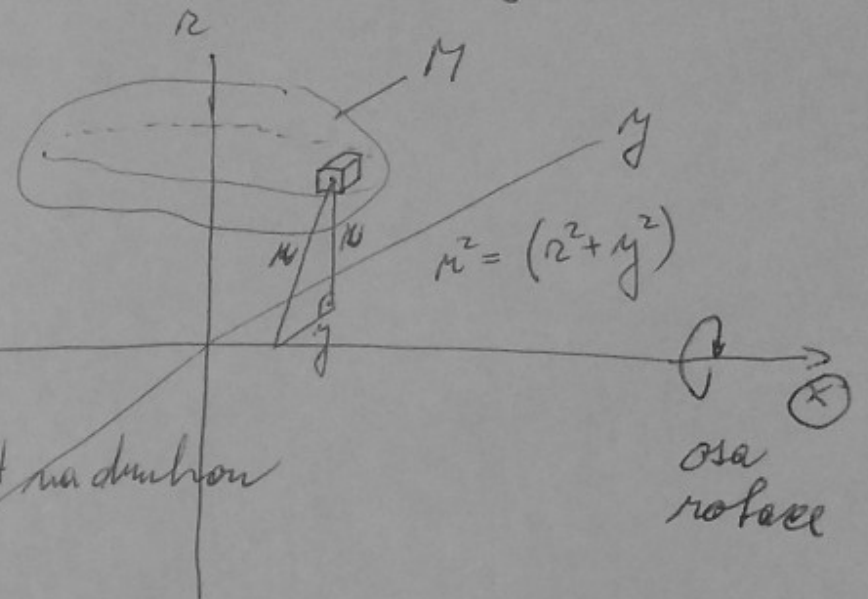 z
M
y
r² = (z² + y²)
r z
y
x
na druhou
osa
rotace